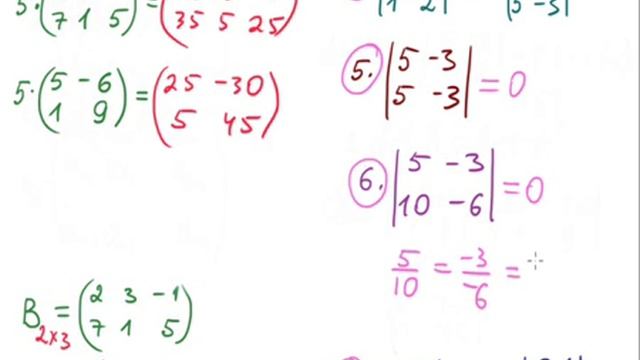 5·(7 1 5) = (35 5 25)
5·(5 -6
1 9) = (25 -30
5 45)
B₂ₓ₃ = (2 3 -1
7 1 5)
|1 2| |5 -3|
5. |5 -3
5 -3| = 0
6. |5 -3
10 -6| = 0
5/10 = -3/-6 =